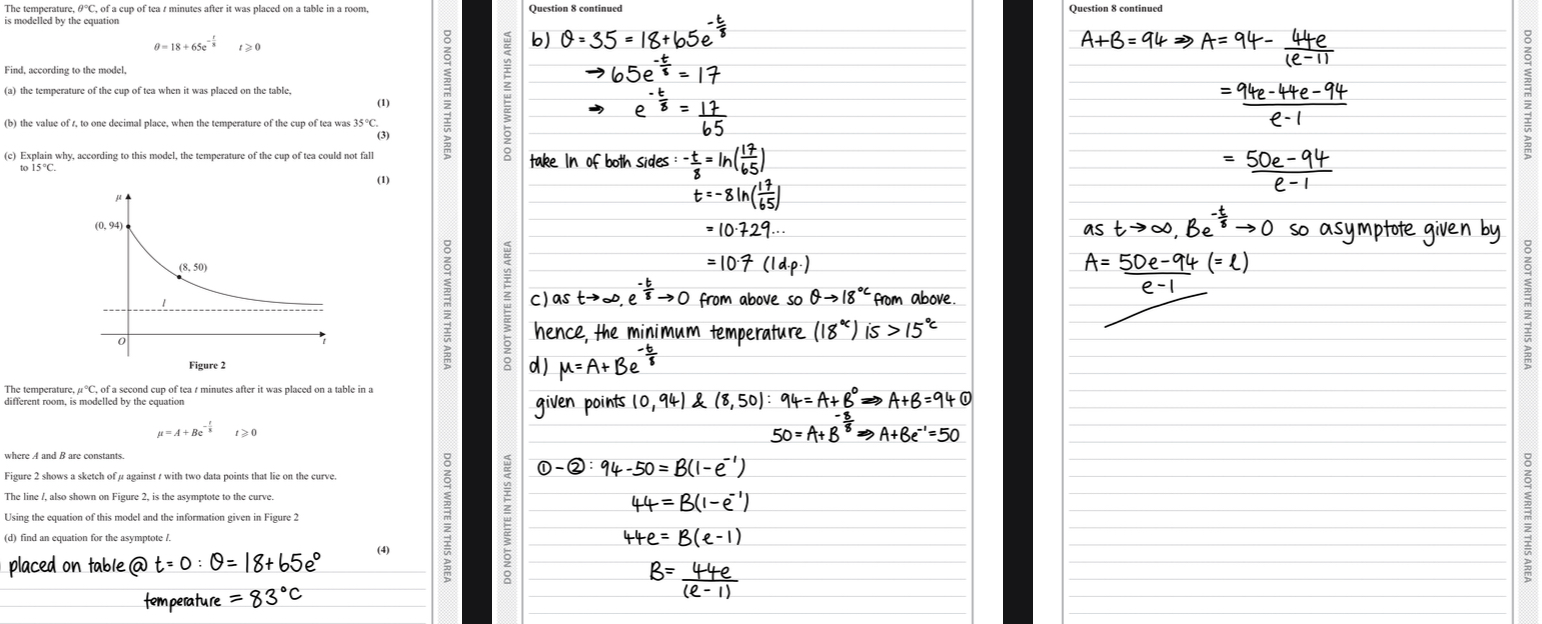 The temperature, θ°C, of a cup of tea t minutes after it was placed on a table in a room,
is modelled by the equation
θ = 18 + 65e^(-t/8) t ⩾ 0
Find, according to the model,
(a) the temperature of the cup of tea when it was placed on the table,
(1)
(b) the value of t, to one decimal place, when the temperature of the cup of tea was 35°C.
(3)
(c) Explain why, according to this model, the temperature of the cup of tea could not fall
to 15°C.
(1)
μ
(0, 94)
(8, 50)
l
O
t
Figure 2
The temperature, μ°C, of a second cup of tea t minutes after it was placed on a table in a
different room, is modelled by the equation
μ = A + Be^(-t/8) t ⩾ 0
where A and B are constants.
Figure 2 shows a sketch of μ against t with two data points that lie on the curve.
The line l, also shown on Figure 2, is the asymptote to the curve.
Using the equation of this model and the information given in Figure 2
(d) find an equation for the asymptote l.
(4)
placed on table @ t = 0 : θ = 18 + 65e⁰
temperature = 83°C
DO NOT WRITE IN THIS AREA
DO NOT WRITE IN THIS AREA
DO NOT WRITE IN THIS AREA
DO NOT WRITE IN THIS AREA
DO NOT WRITE IN THIS AREA
DO NOT WRITE IN THIS AREA
Question 8 continued
b) θ = 35 = 18 + 65e^(-t/8)
→ 65e^(-t/8) = 17
⇒ e^(-t/8) = 17/65
take ln of both sides : -t/8 = ln(17/65)
t = -8 ln(17/65)
= 10.729...
= 10.7 (1d.p.)
c) as t → ∞, e^(-t/8) → 0 from above so θ → 18°C from above.
hence, the minimum temperature (18°C) is > 15°C
d) μ = A + Be^(-t/8)
given points (0, 94) & (8, 50) : 94 = A + B⁰ ⇒ A + B = 94 ①
50 = A + B^(-8/8) ⇒ A + Be⁻¹ = 50
① - ② : 94 - 50 = B(1 - e⁻¹)
44 = B(1 - e⁻¹)
44e = B(e - 1)
B = 44e/(e - 1)
Question 8 continued
A + B = 94 ⇒ A = 94 - 44e/(e - 1)
= (94e - 44e - 94)/(e - 1)
= (50e - 94)/(e - 1)
as t → ∞, Be^(-t/8) → 0 so asymptote given by
A = (50e - 94)/(e - 1) (= l)
DO NOT WRITE IN THIS AREA
DO NOT WRITE IN THIS AREA
DO NOT WRITE IN THIS AREA